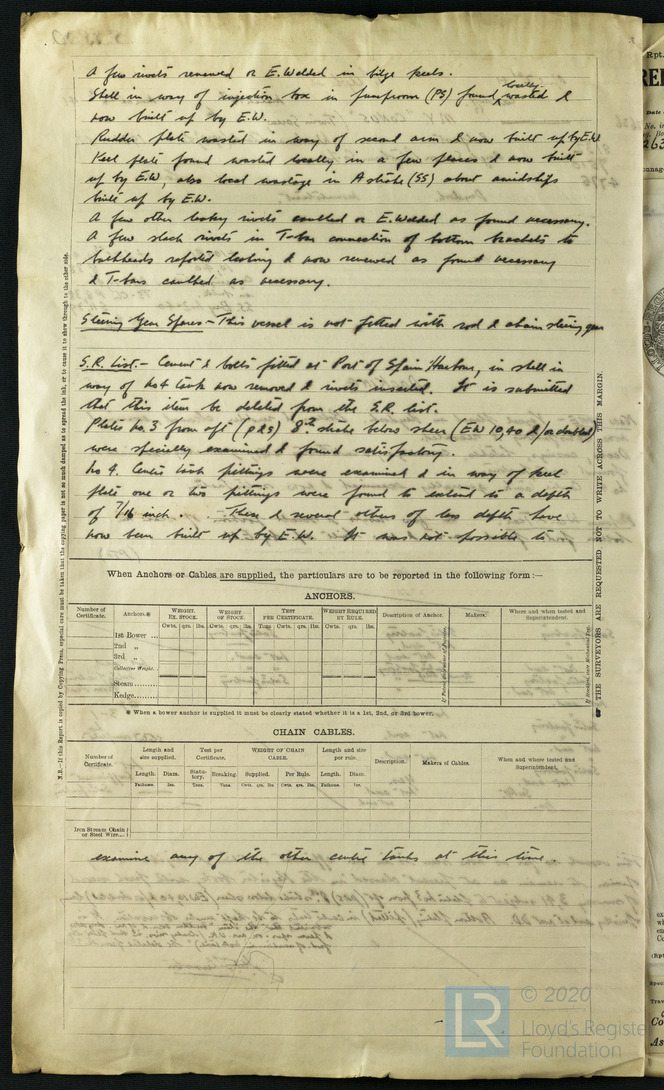 A few rivets renewed or E.Welded in bilge keels.
Shell in way of injection box in pumproom (PS) found locally wasted &
now built up by E.W.
Rudder plate wasted in way of second arm & now built up by E.W
Keel plate found wasted locally in a few places & now built
up by E.W, also local wastage in A strake (SS) about amidships
built up by E.W.
A few other leaky rivets caulked or E.Welded as found necessary.
A few slack rivets in T-bar connection of bottom brackets to
bulkheads reported leaking & now renewed as found necessary
& T-bars caulked as necessary.
Steering Gear Spares - This vessel is not fitted with rod & chain steering gear
S.R. List. - Cement & bolts fitted at Port of Spain Harbour, in shell in
way of No4 tank now removed & rivets inserted. It is submitted
that this item be deleted from the S.R. list.
Plates no.3 from aft (P&S) 8th strake below sheer (EW 10,40 &/or doubled)
were specially examined & found satisfactory.
No 4. Centre tank pittings were examined & in way of keel
plate one or two pittings were found to extend to a depth
of 7/16 inch. Then & several others of less depth have
now been built up by E.W. It was not possible to
When Anchors or Cables are supplied, the particulars are to be reported in the following form :—
ANCHORS.
Number of Certificate. Anchors.* WEIGHT. EX. STOCK. WEIGHT OF STOCK. TEST PER CERTIFICATE. WEIGHT REQUIRED BY RULE. Description of Anchor. Makers. Where and when tested and Superintendent.
Cwts. qrs. lbs. Cwts. qrs. lbs. Tons. Cwts. qrs. lbs. Cwts. qrs. lbs.
1st Bower ...
2nd „
3rd „
Collective Weight.
Stream
Kedge
* When a bower anchor is supplied it must be clearly stated whether it is a 1st, 2nd, or 3rd bower.
CHAIN CABLES.
Number of Certificate. Length and size supplied. Test per Certificate. WEIGHT OF CHAIN CABLE. Length and size per rule. Description. Makers of Cables. When and where tested and Superintendent.
Length. Diam. Statutory. Breaking. Supplied. Per Rule. Length. Diam.
Fathoms. Ins. Tons. Tons. Cwts. qrs. lbs. Cwts. qrs. lbs. Fathoms. Ins.
Iron Stream Chain or Steel Wire...
examine any of the other centre tanks at this time.
N.B.—If this Report is copied by Copying Press, especial care must be taken that the copying paper is not so much damped as to spread the ink, or to cause it to show through to the other side.
THE SURVEYORS ARE REQUESTED NOT TO WRITE ACROSS THIS MARGIN.
© 2020
LR
Lloyd's Registe
Foundation
Rpt.